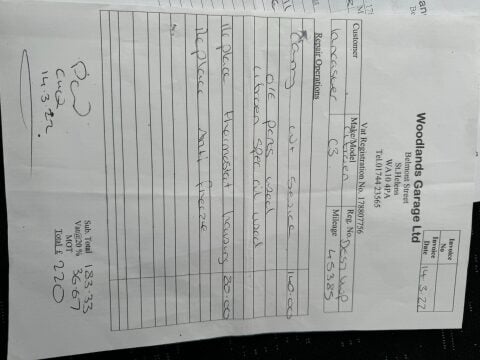 Woodlands Garage Ltd
Belmont Street
St.Helens
WA10 4PA
Tel.01744 23565
Invoice
No
Invoice
Date 14.3.22
Vat Registration No. 178807756
Customer
Make/Model
Reg. No.
Mileage
Lancaster
Citroen C3
45385
Repair Operations
Carry out service 140.00
oil pens used
citroen spec oil used
Replace thermostat housing 80.00
Replace Anti freeze
Sub. Total 183.33
Vat@20% 36.67
MOT
Total £ 220
14.3.22